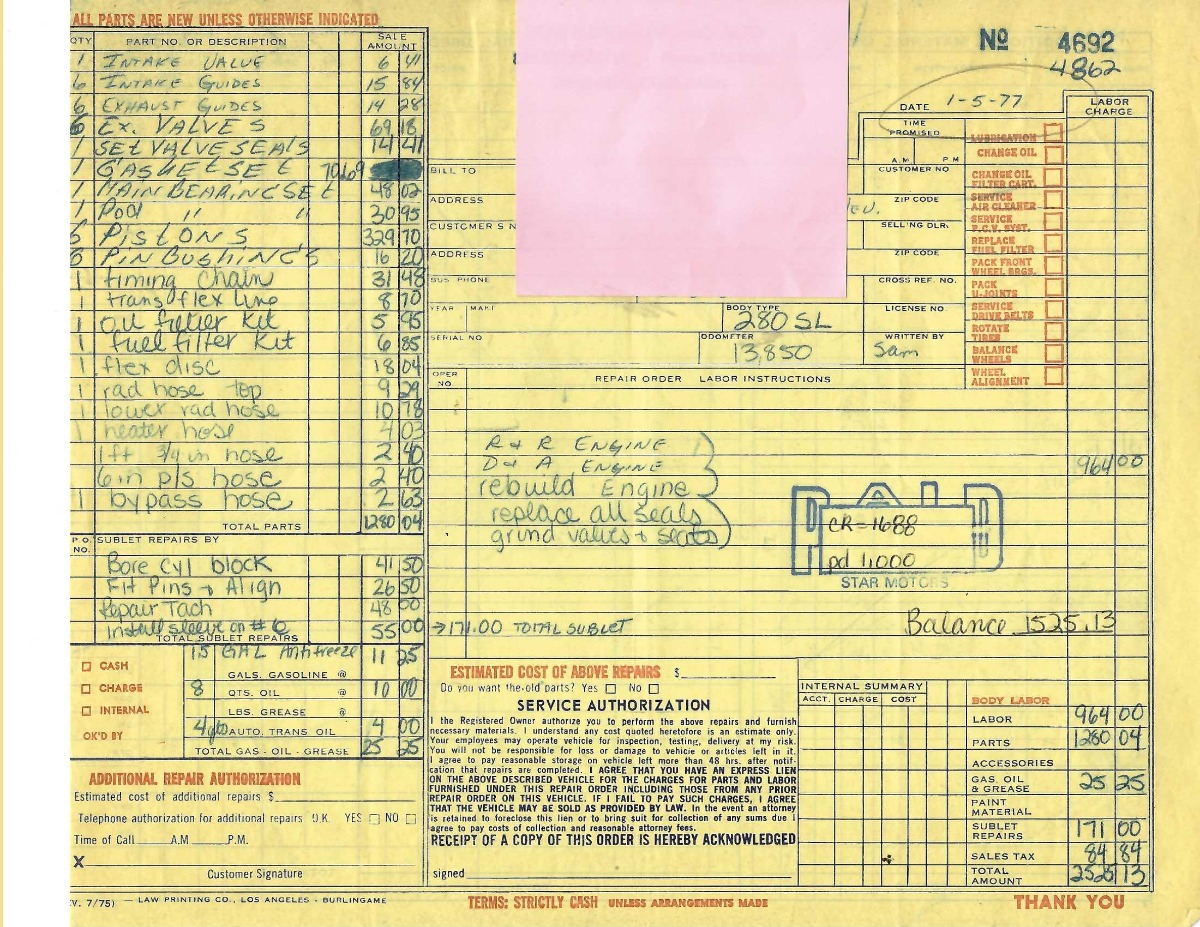 ALL PARTS ARE NEW UNLESS OTHERWISE INDICATED
QTY PART NO. OR DESCRIPTION SALE AMOUNT
1 INTAKE VALVE 6 41
6 INTAKE GUIDES 15 84
6 EXHAUST GUIDES 14 28
6 EX. VALVES 69 18
1 SET VALVE SEALS 14 41
1 GASKET SET 70.69
1 MAIN BEARING SET 48 02
1 ROD " " 30 95
6 PISTONS 329 70
6 PIN BUSHINGS 16 20
1 timing chain 31 48
1 trans flex line 8 70
1 oil filter kit 5 95
1 fuel filter kit 6 85
1 flex disc 18 04
1 rad hose top 9 29
1 lower rad hose 10 78
1 heater hose 4 03
1ft 3/4 in hose 2 40
6in p/s hose 2 40
1 bypass hose 2 63
TOTAL PARTS 1280 04
P.O. NO. SUBLET REPAIRS BY
Bore cyl block 41 50
Fit Pins + Align 26 50
Repair Tach 48 00
Install sleeve on #6 55 00
TOTAL SUBLET REPAIRS
→171.00 TOTAL SUBLET
CASH
CHARGE
INTERNAL
OK'D BY
15 GAL Antifreeze 11 25
GALS. GASOLINE @
8 QTS. OIL @ 10 00
LBS. GREASE @
4 qts AUTO. TRANS OIL 4 00
TOTAL GAS - OIL - GREASE 25 25
ADDITIONAL REPAIR AUTHORIZATION
Estimated cost of additional repairs $
Telephone authorization for additional repairs O.K. YES NO
Time of Call A.M P.M.
X
Customer Signature
V. 7/75) — LAW PRINTING CO., LOS ANGELES - BURLINGAME
Nº 4692
4862
DATE 1-5-77
LABOR CHARGE
TIME PROMISED
A.M. PM
CUSTOMER NO
BILL TO
ADDRESS
ZIP CODE
CUSTOMER'S N
SELLING DLR.
ADDRESS
ZIP CODE
BUS PHONE
CROSS REF. NO.
YEAR MAKE
BODY TYPE 280 SL
LICENSE NO
SERIAL NO
ODOMETER 13,850
WRITTEN BY Sam
LUBRICATION
CHANGE OIL
CHANGE OIL FILTER CART.
SERVICE AIR CLEANER
SERVICE P.C.V. SYST.
REPLACE FUEL FILTER
PACK FRONT WHEEL BRGS.
PACK U-JOINTS
SERVICE DRIVE BELTS
ROTATE TIRES
BALANCE WHEELS
WHEEL ALIGNMENT
OPER NO REPAIR ORDER LABOR INSTRUCTIONS
R & R ENGINE
D & A ENGINE 964 00
rebuild Engine
replace all seals
grind valves + seats
PAID
CR=1688
pd 1,000
STAR MOTORS
Balance 1525.13
ESTIMATED COST OF ABOVE REPAIRS $
Do you want the old parts? Yes No
SERVICE AUTHORIZATION
I the Registered Owner authorize you to perform the above repairs and furnish
necessary materials. I understand any cost quoted heretofore is an estimate only.
Your employees may operate vehicle for inspection, testing, delivery at my risk.
You will not be responsible for loss or damage to vehicle or articles left in it.
I agree to pay reasonable storage on vehicle left more than 48 hrs. after notif-
cation that repairs are completed. I AGREE THAT YOU HAVE AN EXPRESS LIEN
ON THE ABOVE DESCRIBED VEHICLE FOR THE CHARGES FOR PARTS AND LABOR
FURNISHED UNDER THIS REPAIR ORDER INCLUDING THOSE FROM ANY PRIOR
REPAIR ORDER ON THIS VEHICLE. IF I FAIL TO PAY SUCH CHARGES, I AGREE
THAT THE VEHICLE MAY BE SOLD AS PROVIDED BY LAW. In the event an attorney
is retained to foreclose this lien or to bring suit for collection of any sums due I
agree to pay costs of collection and reasonable attorney fees.
RECEIPT OF A COPY OF THIS ORDER IS HEREBY ACKNOWLEDGED
signed
INTERNAL SUMMARY
ACCT. CHARGE COST
BODY LABOR
LABOR 964 00
PARTS 1280 04
ACCESSORIES
GAS. OIL & GREASE 25 25
PAINT MATERIAL
SUBLET REPAIRS 171 00
SALES TAX 84 84
TOTAL AMOUNT 2525 13
TERMS: STRICTLY CASH UNLESS ARRANGEMENTS MADE
THANK YOU